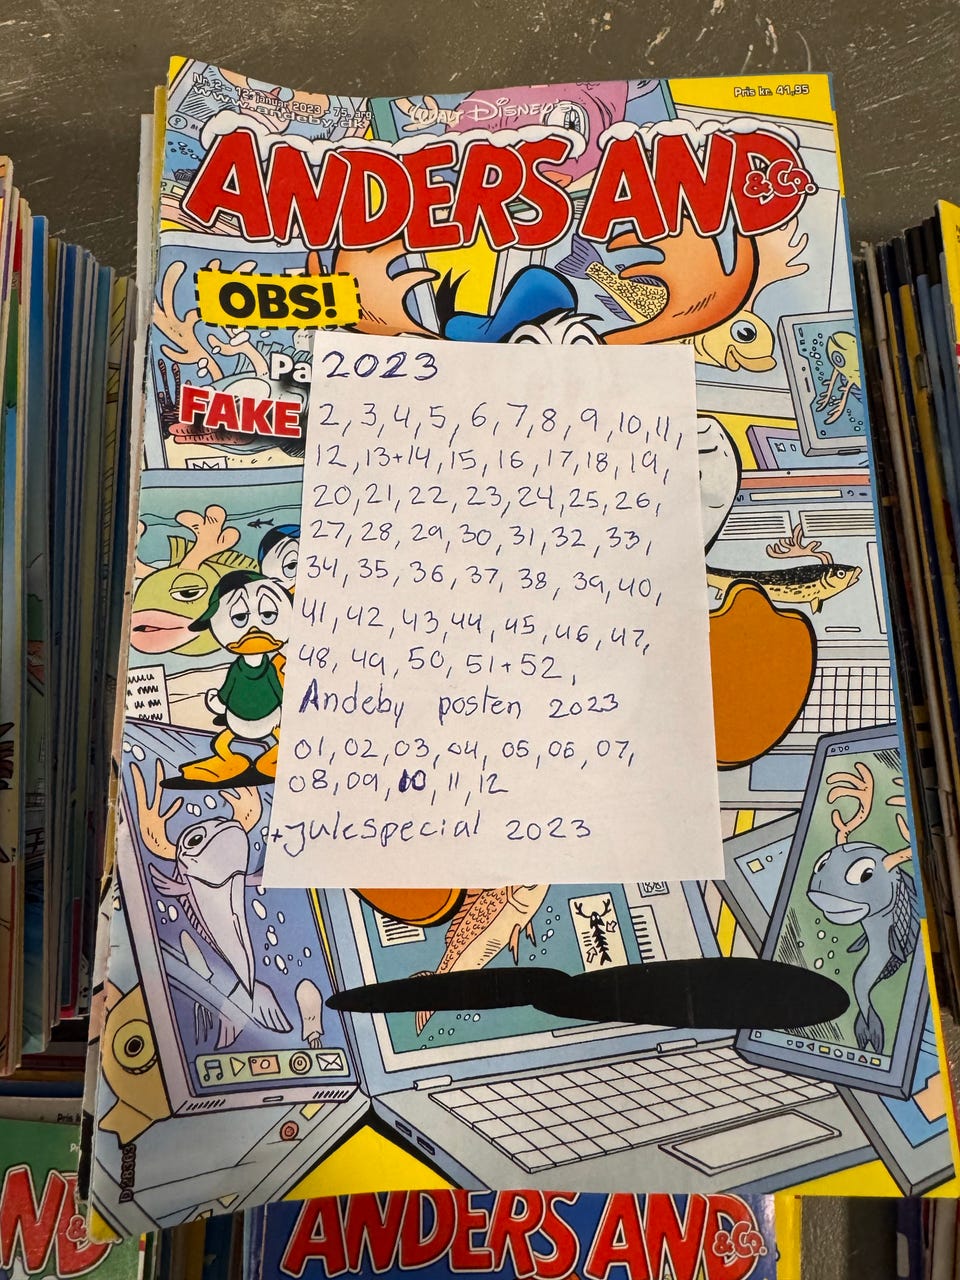 Nr. 2 - 12. januar 2023 - 75. årg.
www.andeby.dk
Pris kr. 41,95
WALT DISNEY'S
ANDERS AND
& Co.
OBS!
FAKE
2023
2, 3, 4, 5, 6, 7, 8, 9, 10, 11,
12, 13+14, 15, 16, 17, 18, 19,
20, 21, 22, 23, 24, 25, 26,
27, 28, 29, 30, 31, 32, 33,
34, 35, 36, 37, 38, 39, 40,
41, 42, 43, 44, 45, 46, 47,
48, 49, 50, 51+52,
Andeby posten 2023
01, 02, 03, 04, 05, 06, 07,
08, 09, 10, 11, 12
+julespecial 2023
ANDERS AND
& Co.